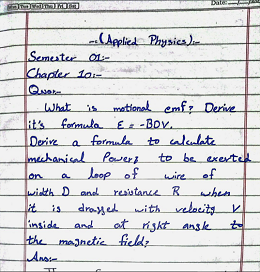 Mon Tue Wed Thu Fri Sat
Date:
-:(Applied Physics):-
Semester 01:-
Chapter 10:-
Ques:-
What is motional emf? Derive
it's formula E = -BDV.
Derive a formula to calculate
mechanical Power, to be exerted
on a loop of wire of
width D and resistance R when
it is dragged with velocity V
inside and at right angle to
the magnetic field?
Ans:-